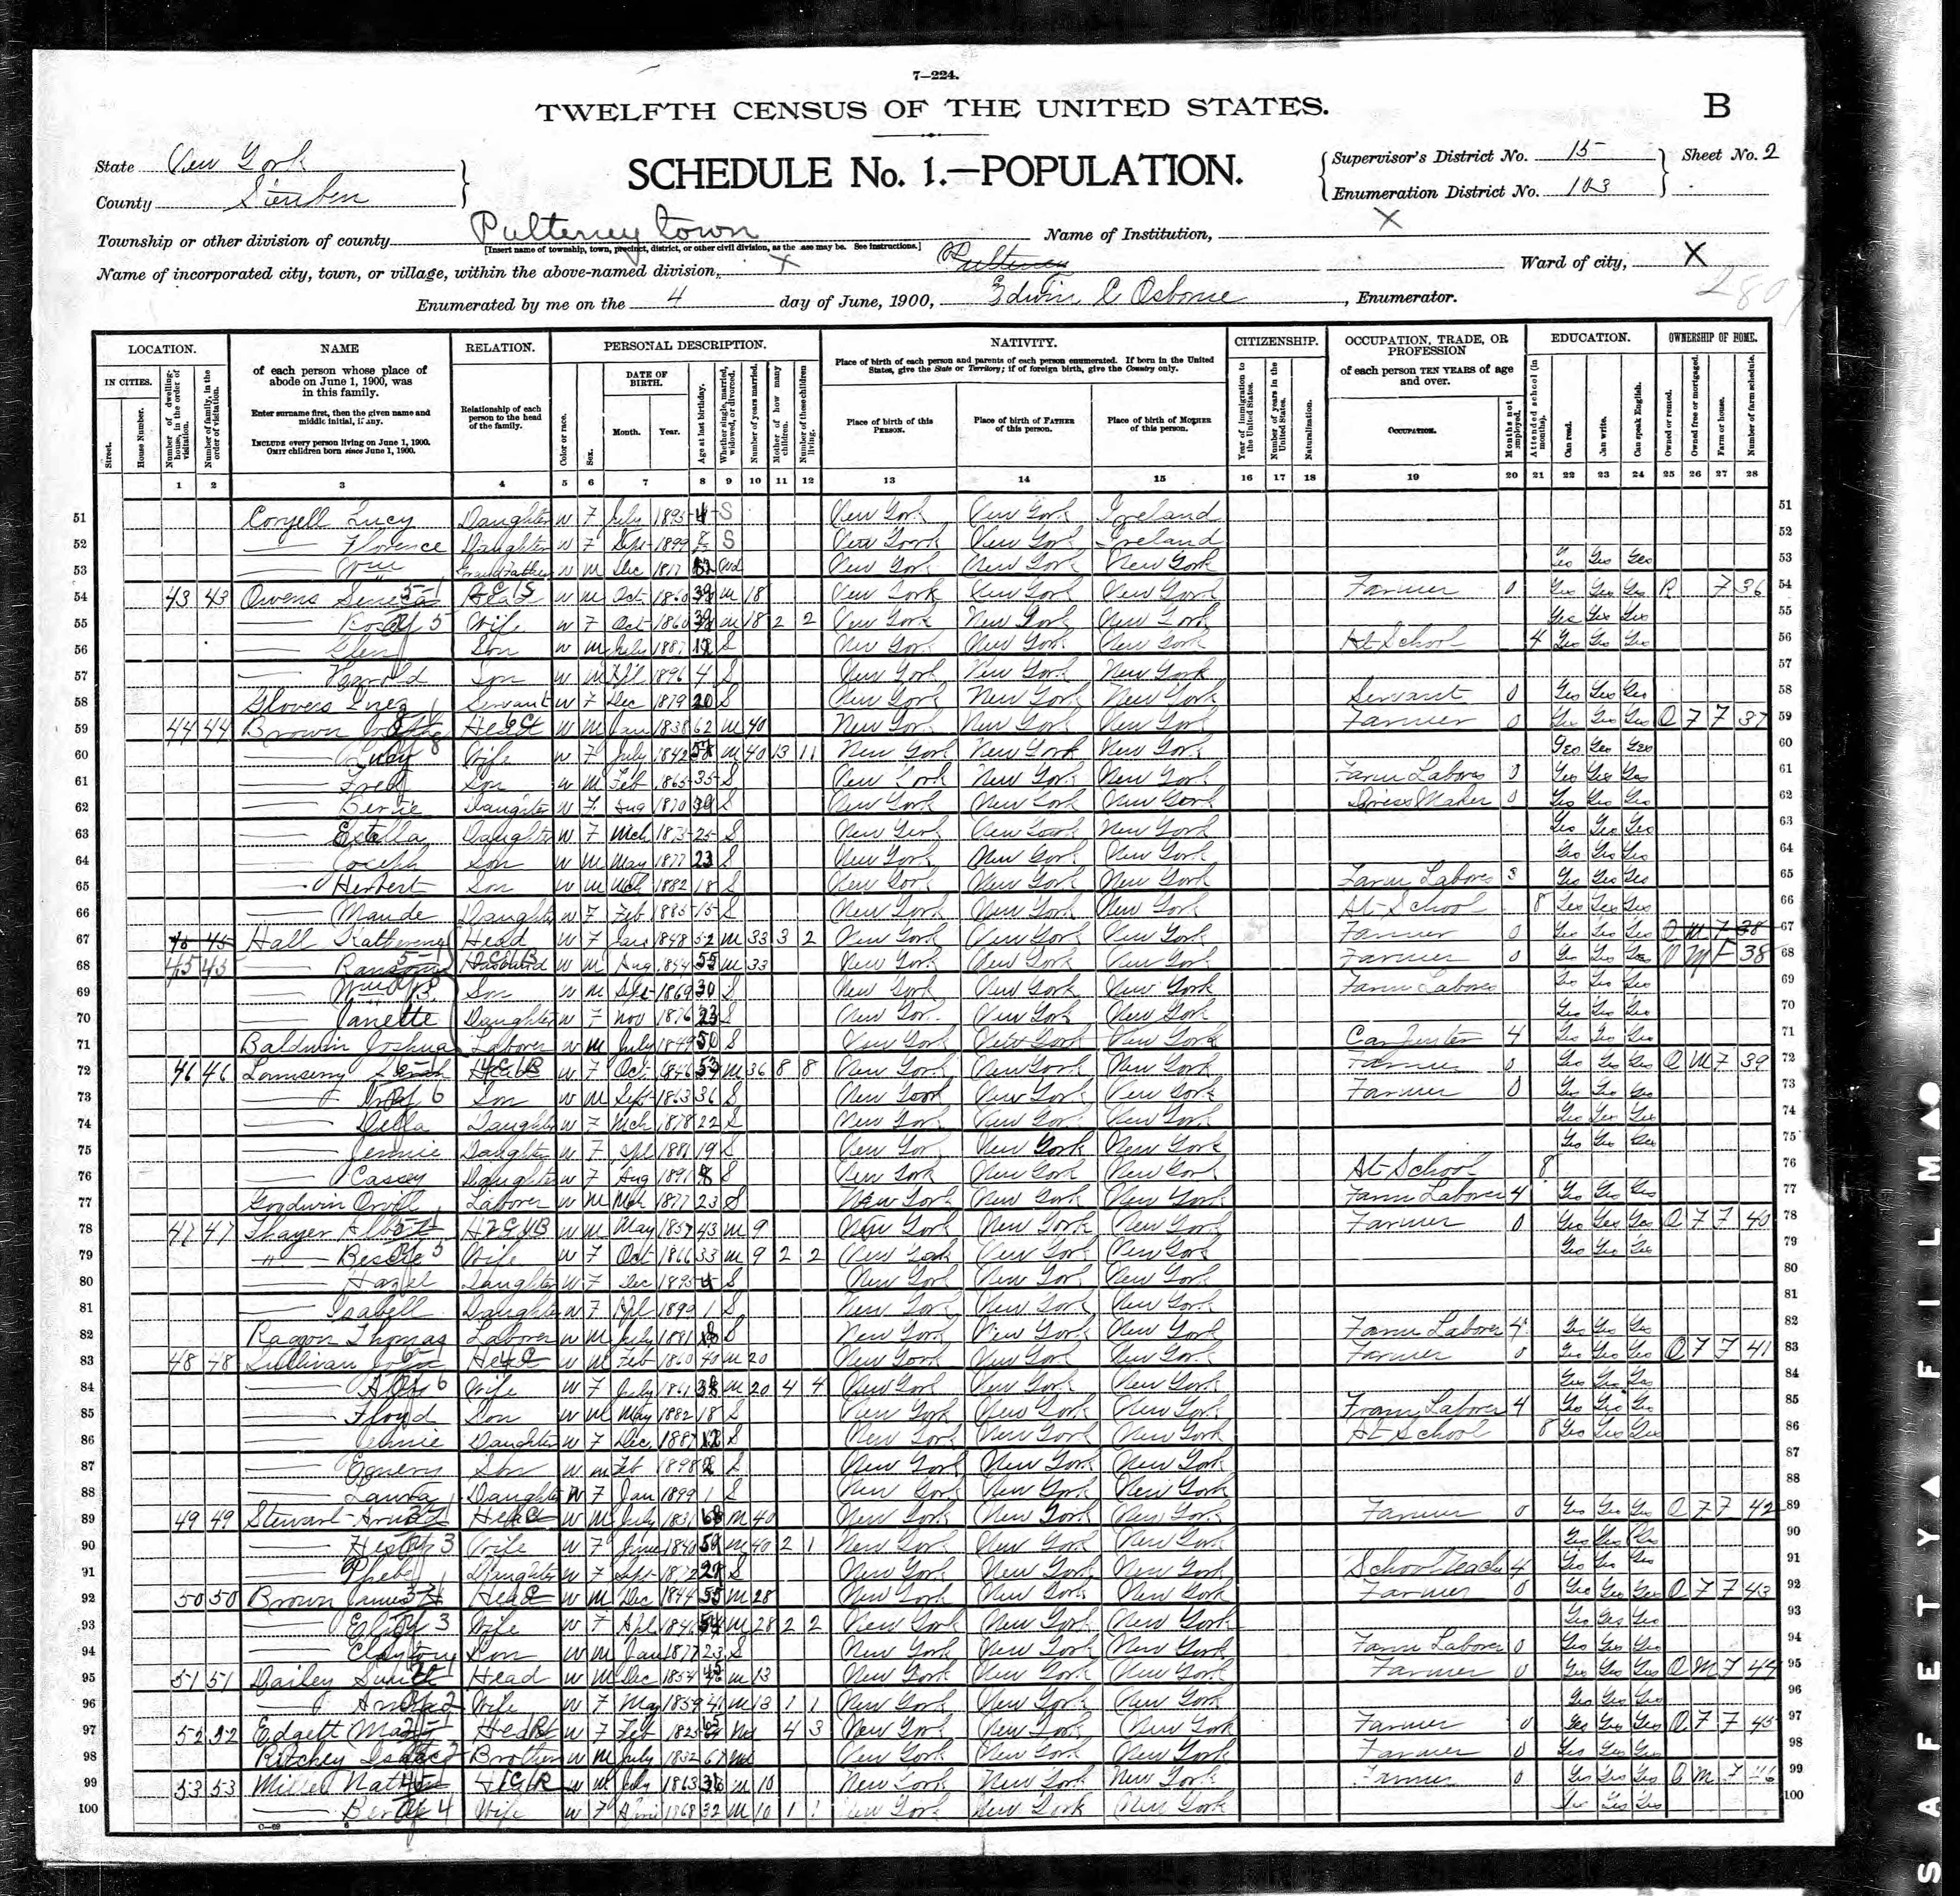 7—224.
TWELFTH CENSUS OF THE UNITED STATES.
B
State New York
SCHEDULE No. 1.—POPULATION.
Supervisor's District No. 15
Sheet No. 2
County Steuben
Enumeration District No. 103
Township or other division of county Pulteney town
Name of Institution, X
[Insert name of township, town, precinct, district, or other civil division, as the case may be. See instructions.]
Name of incorporated city, town, or village, within the above-named division, X Pulteney
Ward of city, X
Enumerated by me on the 4 day of June, 1900, Edwin C Osborne, Enumerator.
LOCATION. NAME RELATION. PERSONAL DESCRIPTION. NATIVITY. CITIZENSHIP. OCCUPATION, TRADE, OR PROFESSION EDUCATION. OWNERSHIP OF HOME.
IN CITIES. Street. House Number. Number of dwelling-house, in the order of visitation. Number of family, in the order of visitation.
of each person whose place of abode on June 1, 1900, was in this family.
Enter surname first, then the given name and middle initial, if any.
INCLUDE every person living on June 1, 1900. OMIT children born since June 1, 1900.
Relationship of each person to the head of the family.
Color or race. Sex. DATE OF BIRTH. Month. Year. Age at last birthday. Whether single, married, widowed, or divorced. Number of years married. Mother of how many children. Number of these children living.
Place of birth of each person and parents of each person enumerated. If born in the United States, give the State or Territory; if of foreign birth, give the Country only.
Place of birth of this PERSON. Place of birth of FATHER of this person. Place of birth of MOTHER of this person.
Year of immigration to the United States. Number of years in the United States. Naturalization.
of each person TEN YEARS of age and over. OCCUPATION. Months not employed.
Attended school (in months). Can read. Can write. Can speak English.
Owned or rented. Owned free or mortgaged. Farm or house. Number of farm schedule.
1 2 3 4 5 6 7 8 9 10 11 12 13 14 15 16 17 18 19 20 21 22 23 24 25 26 27 28
51 Coryell Lucy Daughter W F July 1895 4 S New York New York Ireland 51
52 Florence Daughter W F Sept 1899 S New York New York Ireland 52
53 Wm Grand Father W M Dec 1817 Wd New York New York New York Yes Yes Yes 53
54 43 43 Owens Head W M Oct 1860 39 M 18 New York New York New York Farmer 0 Yes Yes Yes R F 36 54
55 Wife W F Oct 1860 39 M 18 2 2 New York New York New York Yes Yes Yes 55
56 Glen Son W M July 1887 12 S New York New York New York At School 4 Yes Yes Yes 56
57 Harold Son W M Apl 1896 4 S New York New York New York 57
58 Glovers Inez Servant W F Dec 1879 20 S New York New York New York Servant 0 Yes Yes Yes 58
59 44 44 Brown Head W M Jan 1838 62 M 40 New York New York New York Farmer 0 Yes Yes Yes O F F 37 59
60 Wife W F July 1842 M 40 13 11 New York New York New York Yes Yes Yes 60
61 Fred Son W M Feb 1865 35 S New York New York New York Farm Labores Yes Yes Yes 61
62 Bertie Daughter W F Aug 1870 S New York New York New York Dress Maker 0 Yes Yes Yes 62
63 Estella Daughter W F Mch 1875 25 S New York New York New York Yes Yes Yes 63
64 Joseph Son W M May 1877 23 S New York New York New York Yes Yes Yes 64
65 Herbert Son W M Mch 1882 18 S New York New York New York Farm Labores 3 Yes Yes Yes 65
66 Maude Daughter W F Feb 1885 15 S New York New York New York At School 8 Yes Yes Yes 66
67 45 45 Hall Katherine Head W F Jan 1848 52 M 33 3 2 New York New York New York Farmer 0 Yes Yes Yes O M F 38 67
68 45 45 Ransom Husband W M Aug 1844 55 M 33 New York New York New York Farmer 0 Yes Yes Yes O M F 38 68
69 Son W M 1869 30 S New York New York New York Farm Labores Yes Yes Yes 69
70 Janette Daughter W F Nov 1876 23 S New York New York New York Yes Yes Yes 70
71 Baldwin Joshua Laborer W M July 1849 50 S New York New York New York Carpenter 4 Yes Yes Yes 71
72 46 46 Head W F Oct 1846 53 M 36 8 8 New York New York New York Farmer 0 Yes Yes Yes O M F 39 72
73 Son W M Sept 1863 36 S New York New York New York Farmer 0 Yes Yes Yes 73
74 Della Daughter W F Mch 1878 22 S New York New York New York Yes Yes Yes 74
75 Jennie Daughter W F Apl 1881 19 S New York New York New York Yes Yes Yes 75
76 Cassey Daughter W F Aug 1891 8 S New York New York New York At School 8 76
77 Goodwin Orvill Laborer W M Mch 1877 23 S New York New York New York Farm Laborer 4 Yes Yes Yes 77
78 47 47 Thayer Albert Head W M May 1857 43 M 9 New York New York New York Farmer 0 Yes Yes Yes O F F 40 78
79 " Bessie Wife W F Oct 1866 33 M 9 2 2 New York New York New York Yes Yes Yes 79
80 Hazel Daughter W F Dec 1895 4 S New York New York New York 80
81 Isabell Daughter W F Apl 1899 1 S New York New York New York 81
82 Raggon Thomas Laborer W M July 1881 18 S New York New York New York Farm Laborer 4 Yes Yes Yes 82
83 48 48 Sullivan John Head W M Feb 1860 40 M 20 New York New York New York Farmer 0 Yes Yes Yes O F F 41 83
84 Wife W F July 1861 38 M 20 4 4 New York New York New York Yes Yes Yes 84
85 Floyd Son W M May 1882 18 S New York New York New York Farm Laborer 4 Yes Yes Yes 85
86 Jennie Daughter W F Dec 1887 12 S New York New York New York At School 8 Yes Yes Yes 86
87 Son W M Feb 1898 2 S New York New York New York 87
88 Laura Daughter W F Jan 1899 1 S New York New York New York 88
89 49 49 Stewart Head W M July 1831 68 M 40 New York New York New York Farmer 0 Yes Yes Yes O F F 42 89
90 Wife W F June 1840 59 M 40 2 1 New York New York New York Yes Yes Yes 90
91 Phebe Daughter W F Sept 1872 27 S New York New York New York School Teacher 4 Yes Yes Yes 91
92 50 50 Brown James Head W M Dec 1844 55 M 28 New York New York New York Farmer 0 Yes Yes Yes O F F 43 92
93 Wife W F Apl 1846 54 M 28 2 2 New York New York New York Yes Yes Yes 93
94 Clayton Son W M Jan 1877 23 S New York New York New York Farm Laborer 0 Yes Yes Yes 94
95 51 51 Dailey Head W M Dec 1854 45 M 13 New York New York New York Farmer 0 Yes Yes Yes O M F 44 95
96 Wife W F May 1859 41 M 13 1 1 New York New York New York Yes Yes Yes 96
97 52 52 Edgett Mary Head W F Feb 1825 Wd 4 3 New York New York New York Farmer 0 Yes Yes Yes O F F 45 97
98 Ritchey Isaac Brother W M July 1832 67 Wd New York New York New York Farmer 0 Yes Yes Yes 98
99 53 53 Miller Nathan Head W M July 1863 36 M 10 New York New York New York Farmer 0 Yes Yes Yes O M F 46 99
100 Wife W F June 1868 32 M 10 1 1 New York New York New York Yes Yes Yes 100
SAFETY FILM